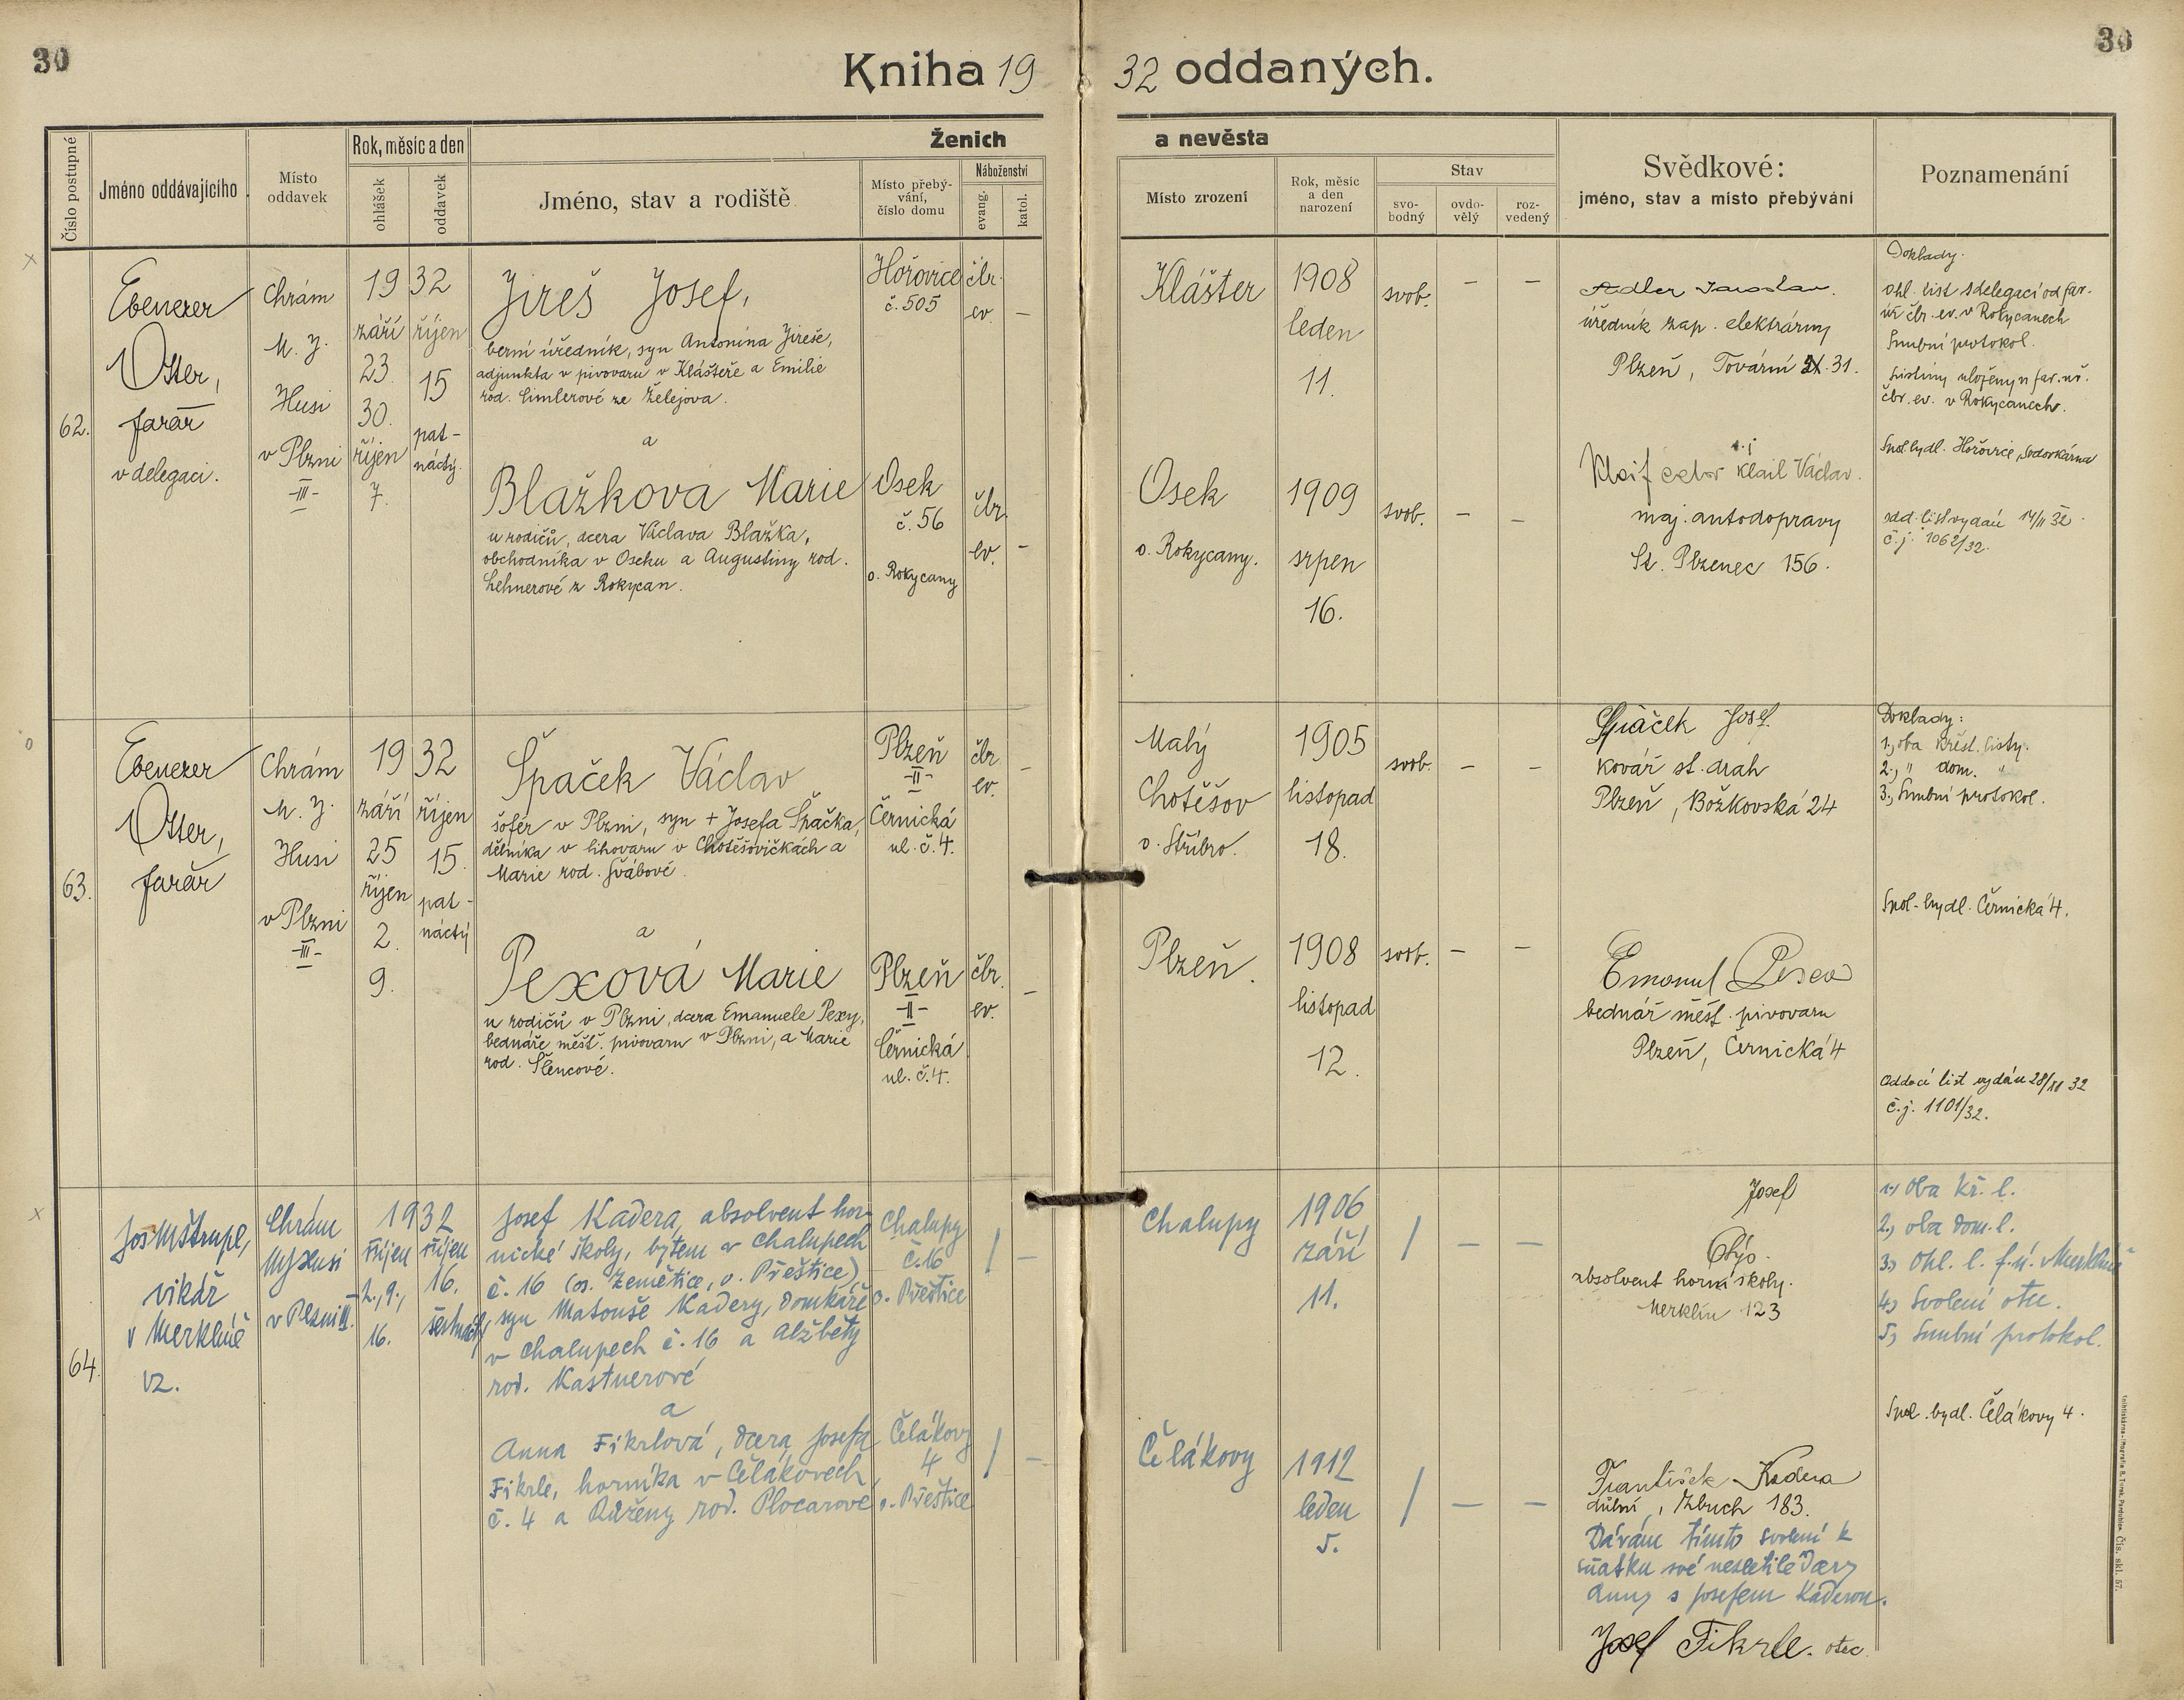 30
30
Kniha 1932 oddaných.
Číslo postupné
Jméno oddávajícího
Místo
oddavek
Rok, měsíc a den
ohlášek
oddavek
Ženich
Jméno, stav a rodiště
Místo přebý-
vání,
číslo domu
Náboženství
evang.
katol.
a nevěsta
Místo zrození
Rok, měsíc
a den
narození
Stav
svo-
bodný
ovdo-
vělý
roz-
vedený
Svědkové:
jméno, stav a místo přebývání
Poznamenání
62.
Ebenezer
Otter,
farář
v delegaci.
Chrám
M. J.
Husi
v Plzni
-III-
1932
září
23.
30.
říjen
7.
říjen
15
pat-
náctý.
Jireš Josef,
berní úředník, syn Antonína Jireše,
adjunkta v pivovaru v Klášteře a Emilie
rod. Cimlerové ze Želejova.
a
Blažková Marie
u rodičů, dcera Václava Blažka,
obchodníka v Oseku a Augustiny rod.
Lehnerové z Rokycan.
Hořovice
č. 505
čbr.
ev.
–
Osek
č. 56
o. Rokycany
čbr.
ev.
–
Klášter
1908
leden
11.
svob.
–
–
Osek
o. Rokycany.
1909
srpen
16.
svob.
–
–
Adler Jaroslav.
úředník zap. elektrárny
Plzeň, Tovární 31.
Klail Václav.
maj. autodopravy
St. Plzenec 156.
Doklady.
ohl. list s delegací od far.
úř. čbr. ev. v Rokycanech
Snubní protokol.
Listiny uloženy u far. úř.
čbr. ev. v Rokycanech.
Spol. bydl. Hořovice, Sodovkárna
odd. list vydán 14/11 32.
č. j. 1062/32.
63.
Ebenezer
Otter,
farář
Chrám
M. J.
Husi
v Plzni
-III-
1932
září
25
říjen
2.
9.
říjen
15.
pat-
náctý
Špaček Václav
šofér v Plzni, syn + Josefa Špačka,
dělníka v lihovaru v Chotěšovičkách a
Marie rod. Švábové.
a
Pexová Marie
u rodičů v Plzni, dcera Emanuele Pexy,
bednáře měšť. pivovaru v Plzni, a Marie
rod. Šlencové.
Plzeň
-II-
Černická
ul. č. 4.
čbr.
ev.
–
Plzeň
-II-
Černická
ul. č. 4.
čbr.
ev.
–
Malý
Chotěšov
o. Stříbro.
1905
listopad
18.
svob.
–
–
Plzeň.
1908
listopad
12.
svob.
–
–
Špaček Josef
kovář st. drah
Plzeň, Božkovská 24
Emanuel Pexa
bednář měšť. pivovaru
Plzeň, Černická 4
Doklady:
1., oba křest. listy.
2., " dom. "
3., Snubní protokol.
Spol. bydl. Černická 4.
Oddací list vydán 28/XI 32
č. j. 1101/32.
64.
Jos. Mštrupl,
vikář
v Merklíně
vz.
Chrám
M J Husi
v Plzni III.
1932
říjen
2., 9.,
16.
říjen
16.
šestnáctý
Josef Kadera, absolvent hor-
nické školy, bytem v Chalupech
č. 16 (os. Zemětice, o. Přeštice),
syn Matouše Kadery, domkáře
v Chalupech č. 16 a Alžběty
rod. Kastnerové
a
Anna Fikrlová, dcera Josefa
Fikrle, horníka v Čelákovech
č. 4 a Růženy rod. Plocarové
Chalupy
č. 16
o. Přeštice
/
–
Čelákovy
4
o. Přeštice
/
–
Chalupy
1906
září
11.
/
–
–
Čelákovy
1912
leden
5.
/
–
–
Josef
absolvent horní školy.
Merklín 123
František Kadera
důlní, Zbuch 183.
Dávám tímto svolení k
sňatku své nezletilé dcery
Anny s Josefem Kaderou.
Josef Fikrle. otec
1., Oba kř. l.
2., oba dom. l.
3., Ohl. l. f. ú. Merklín
4., Svolení otce.
5., Snubní protokol.
Spol. bydl. Čelákovy 4.
Čís. skl. 57.